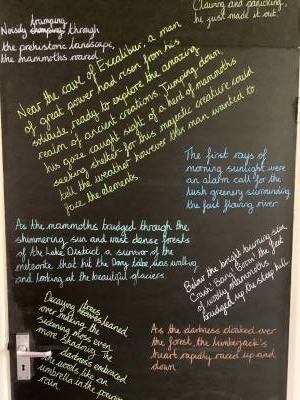 tramping
Noisily stomping through
the prehistoric landscape,
the mammoths roared
Clawing and panicking,
he just made it out!
Near the cave of Excalibur, a man
of great power had risen from his
solitude, ready to explore the amazing
realm of ancient creations. Jumping down,
his gaze caught sight of a herd of mammoths
seeking shelter for this majestic creature could
tell the weather however this man wanted to
face the elements.
The first rays of
morning sunlight were
an alarm call for the
lush greenery surrounding
the fast flowing river.
As the mammoths trudged through the
shimmering sun and vast dense forests
of the Lake District, a survivor of the
meteorite that hit the Dory lake was walking
and looking at the beautiful glaciers.
Below the bright burning sun,
Crash! Bang! Boom! the feet
of woolly mammoths
trudged up the steep hill
Decaying trees leaned
over making the
sickening mess even
more shadowy. The
darkness embraced
the woods like an
umbrella in the pouring
rain.
As the darkness cloaked over
the forest the lumberjack's
heart rapidly raced up and
down